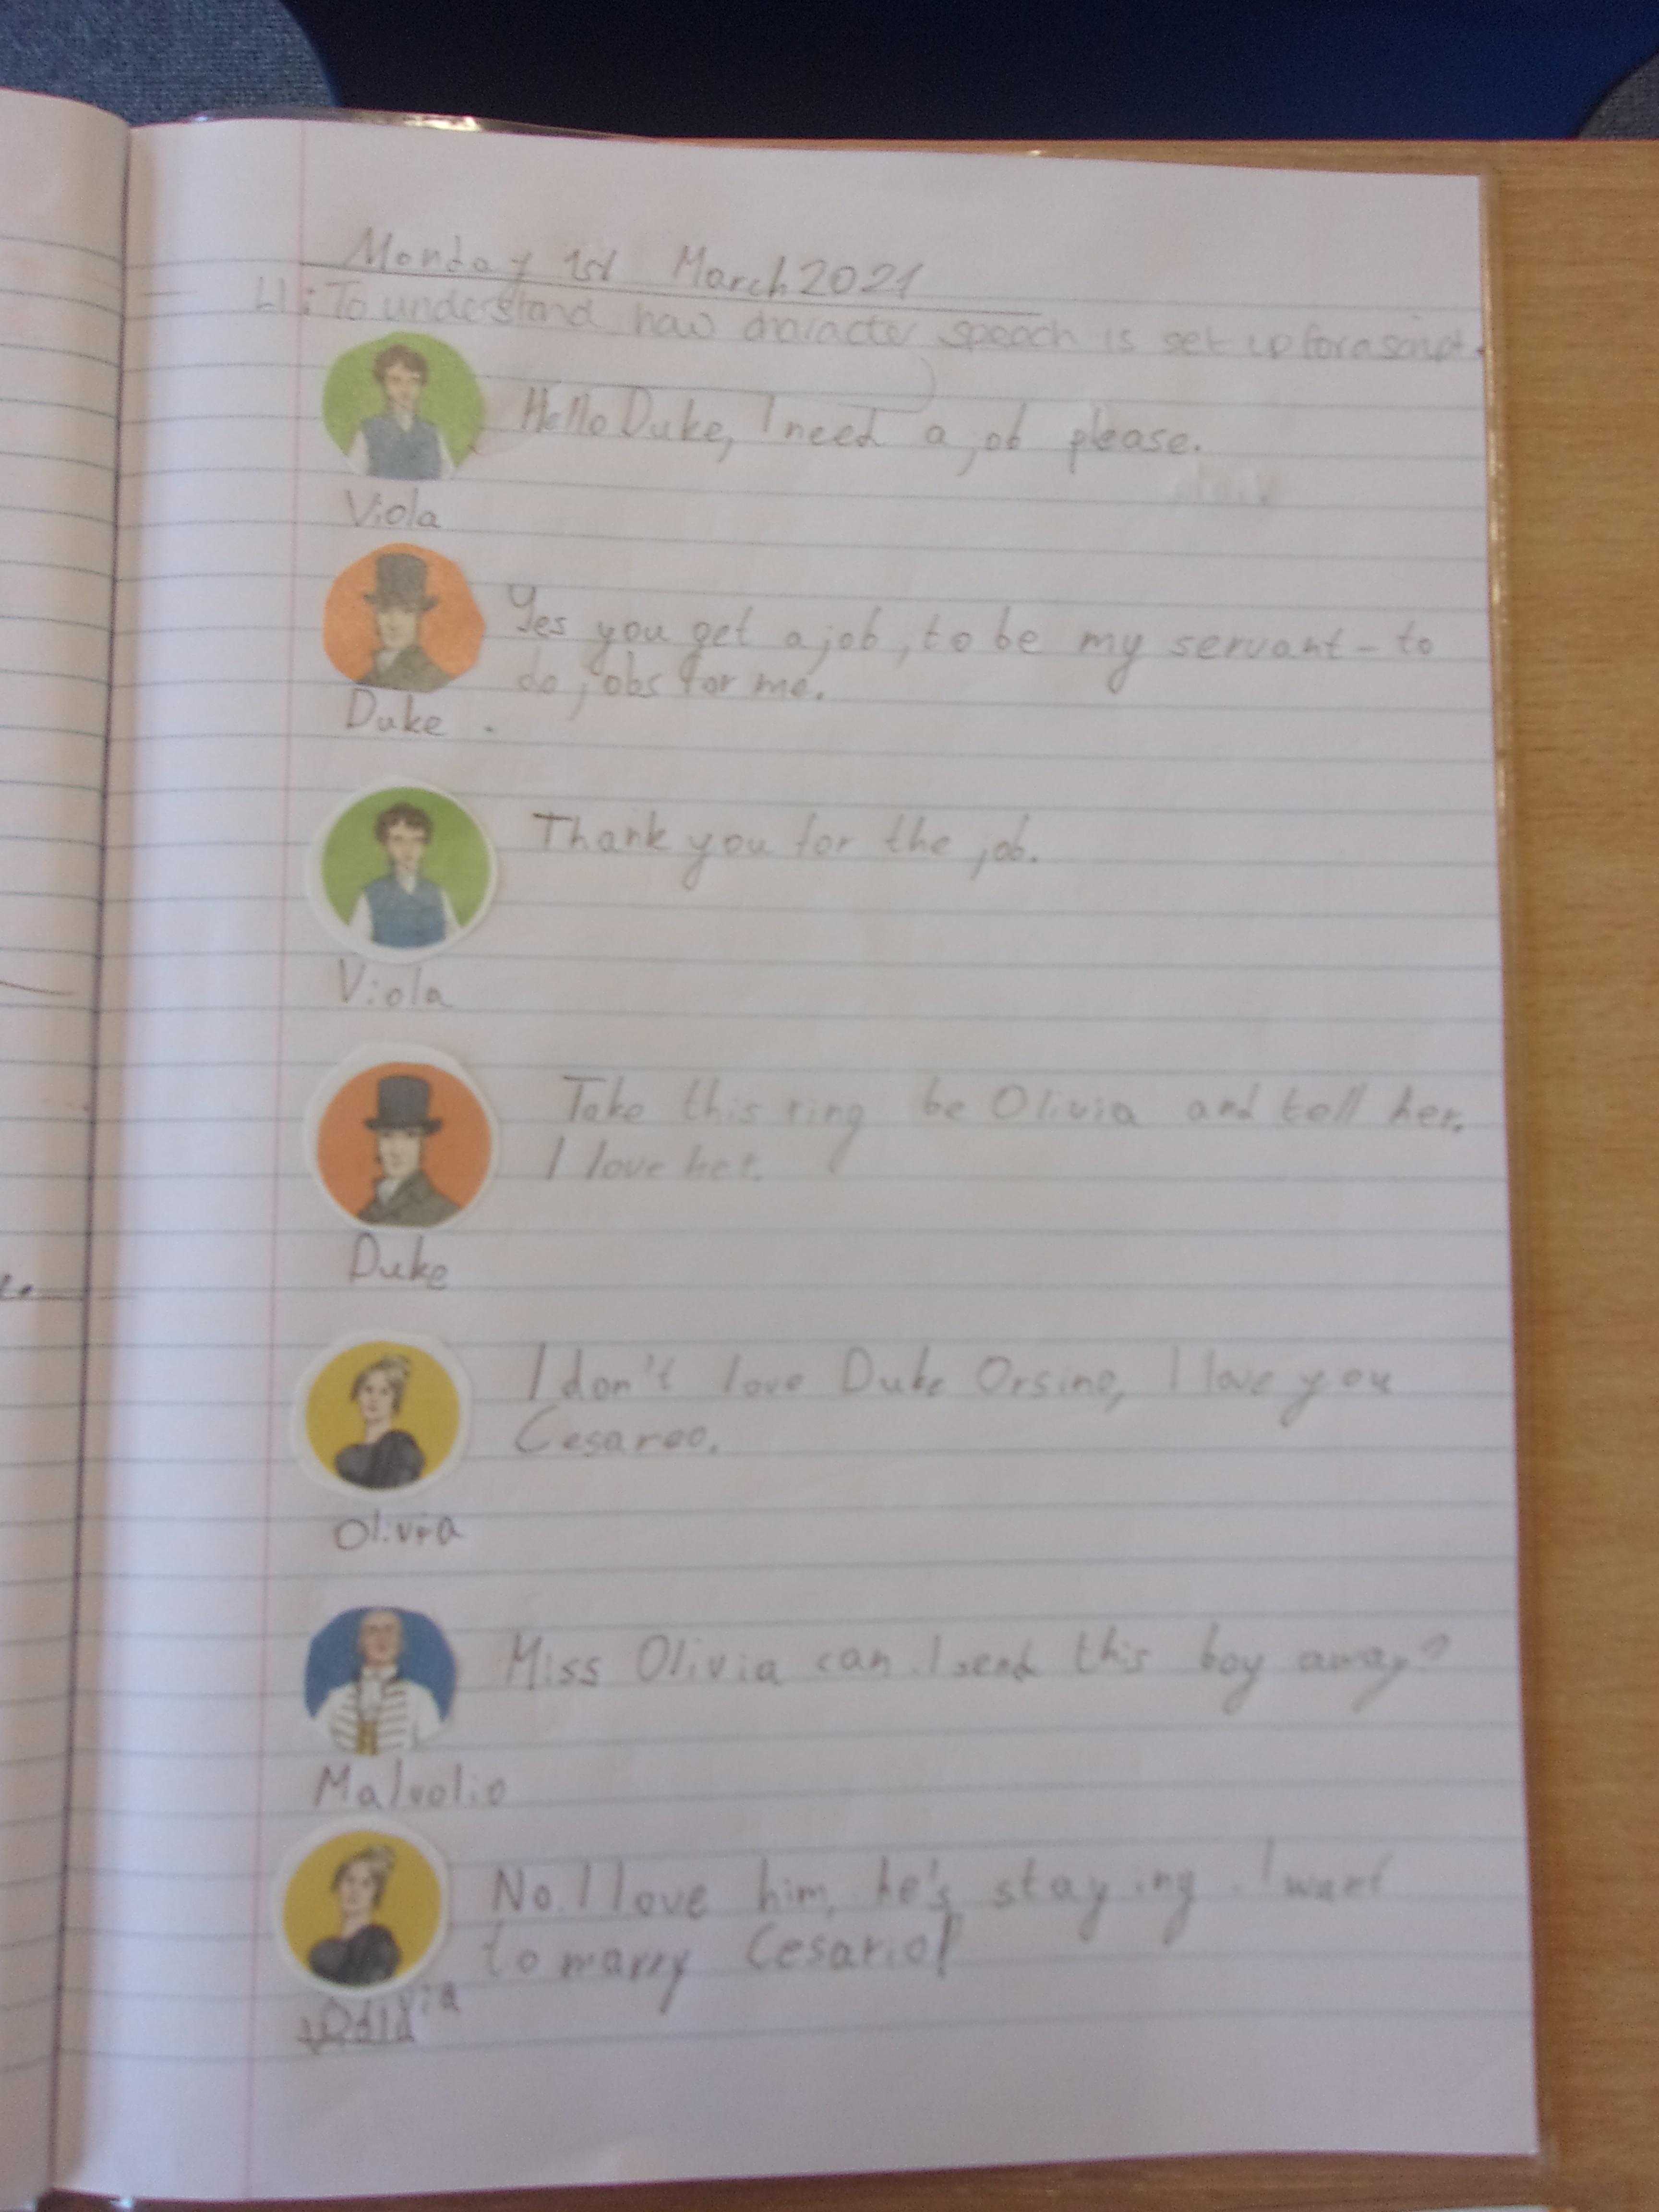 Monday 1st March 2021
LI: To understand how character speech is set up for a script.
Hello Duke, I need a job please.
Viola
Yes you get a job, to be my servant - to
do jobs for me.
Duke.
Thank you for the job.
Viola
Take this ring be Olivia and tell her.
I love her.
Duke
I don't love Duke Orsino, I love you
Cesareo.
Olivia
Miss Olivia can I send this boy away?
Malvolio
No. I love him, he's staying. I want
to marry Cesario!